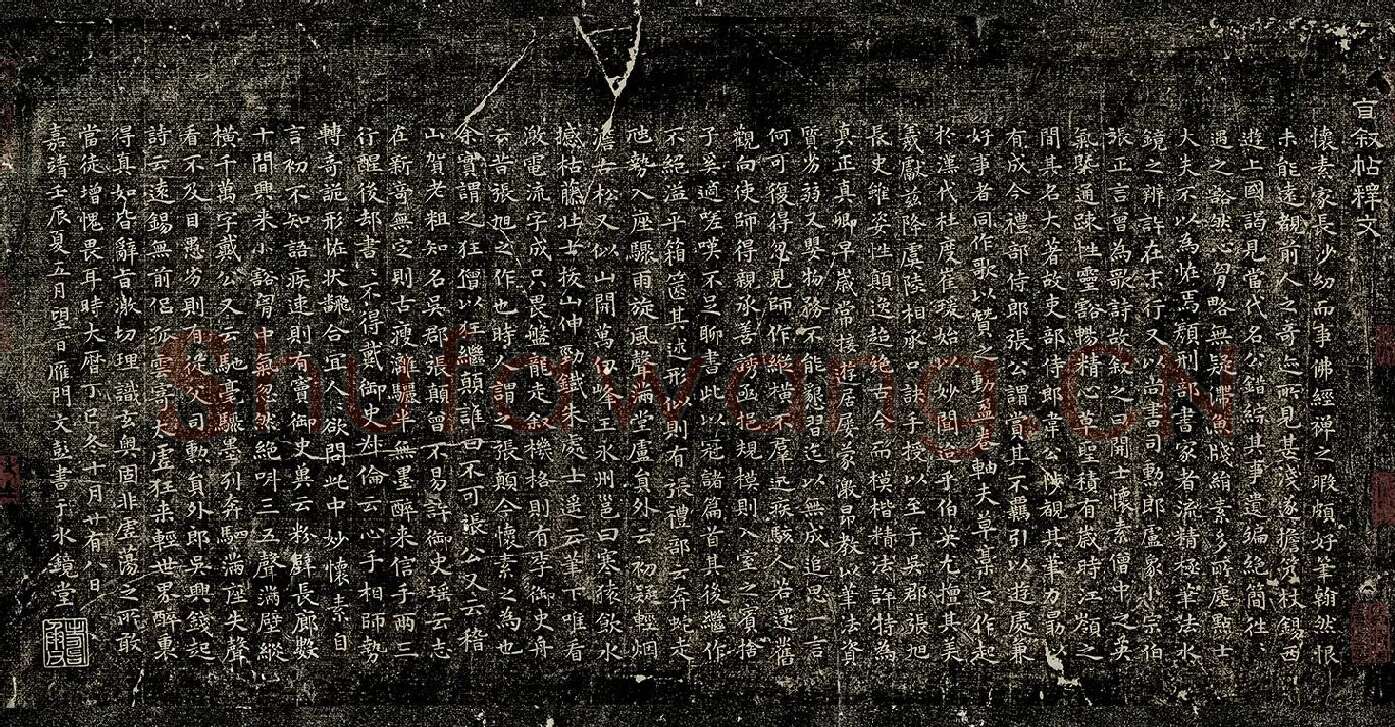 自叙帖釋文
懷素家長沙幼而事佛經禪之暇頗好筆翰然恨
未能遠覩前人之奇迹所見甚淺遂擔笈杖錫西
遊上國謁見當代名公錯綜其事遺編絕簡往〻
遇之豁然心胷略無疑滯魚牋絹素多所塵點士
大夫不以為怪焉顏刑部書家者流精極筆法水
鏡之辨許在末行又以尚書司勳郎盧象小宗伯
張正言曾為歌詩故叙之曰開士懷素僧中之英
氣槩通疎性靈豁暢精心草聖積有歲時江嶺之
間其名大著故吏部侍郎韋公陟覩其筆力勗以
有成今禮部侍郎張公謂賞其不羈引以遊處兼
好事者同作歌以贊之動盈卷軸夫草藁之作起
於漢代杜度崔瑗始以妙聞迨乎伯英尤擅其美
羲獻茲降虞陸相承口訣手授以至于吳郡張旭
長史雖姿性顛逸超絕古今而模楷精法詳特為
真正真卿早歲常接遊居屢蒙激昂教以筆法資
質劣弱又嬰物務不能懇習迄以無成追思一言
何可復得忽見師作縱橫不羣迅疾駭人若還舊
觀向使師得親承善誘亟挹規模則入室之賓捨
子奚適嗟嘆不足聊書此以冠諸篇首其後繼作
不絕溢乎箱篋其述形似則有張禮部云奔蛇走
虺勢入座驟雨旋風聲滿堂盧員外云初疑輕烟
澹古松又似山開萬仞峰王永州邕曰寒猿飲水
撼枯籐壯士拔山伸勁鐵朱處士遥云筆下唯看
激電流字成只畏盤龍走叙機格則有李御史舟
云昔張旭之作也時人謂之張顛今懷素之為也
余實謂之狂僧以狂繼顛誰曰不可張公又云稽
山賀老粗知名吳郡張顛曾不易許御史瑶云志
在新奇無定則古瘦漓驪半無墨醉来信手兩三
行醒後却書〻不得戴御史叔倫云心手相師勢
轉奇詭形怪狀翻合宜人〻欲問此中妙懷素自
言初不知語疾速則有竇御史兾云粉壁長廊數
十間興来小豁胷中氣忽然絕叫三五聲滿壁縱
橫千萬字戴公又云馳毫驟墨列奔駟滿座失聲
看不及目愚劣則有從父司勳員外郎吳興錢起
詩云遠錫無前侶孤雲寄太虛狂来輕世界醉裏
得真如皆辭旨激切理識玄奥固非虛蕩之所敢
當徒增愧畏耳時大暦丁巳冬十月廿有八日
嘉靖壬辰夏五月望日雁門文彭書于水鏡堂
Shufawang.CN